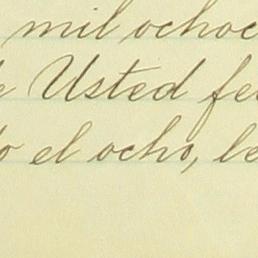 mil ochoc
e Usted fe
o el ocho, le